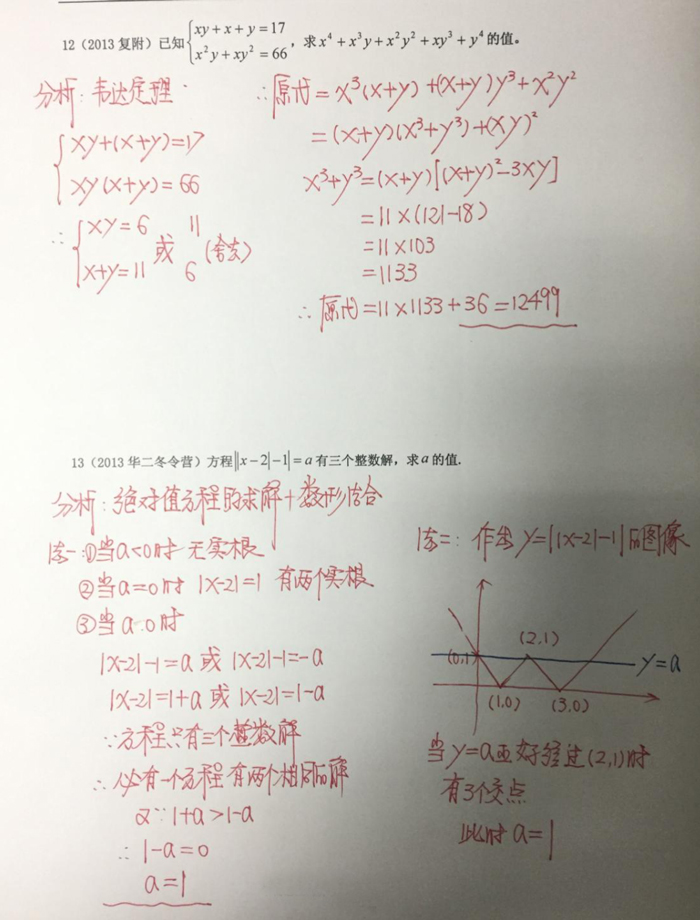 12（2013 复附）已知{xy+x+y=17, x²y+xy²=66，求x⁴+x³y+x²y²+xy³+y⁴的值。
分析：韦达定理
{xy+(x+y)=17
xy(x+y)=66
∴{xy=6 或 11 (舍去)
x+y=11 6
∴原式=x³(x+y)+(x+y)y³+x²y²
=(x+y)(x³+y³)+(xy)²
x³+y³=(x+y)[(x+y)²-3xy]
=11×(121-18)
=11×103
=1133
∴原式=11×1133+36=12499
13（2013 华二冬令营）方程||x-2|-1|=a有三个整数解，求a的值.
分析：绝对值方程的求解+数形结合
法一：①当a<0时 无实根
②当a=0时 |x-2|=1 有两个实根
③当a>0时
|x-2|-1=a 或 |x-2|-1=-a
|x-2|=1+a 或 |x-2|=1-a
∵方程只有三个整数解
∴必有一个方程有两个相同的解
又∵1+a>1-a
∴1-a=0
a=1
法二：作出y=||x-2|-1|的图像
(2,1)
(0,1)
y=a
(1,0) (3,0)
当y=a正好经过(2,1)时
有3个交点
此时a=1